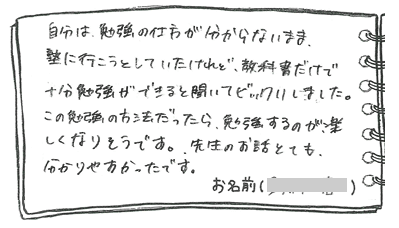 自分は、勉強の仕方が分からないまま、
塾に行こうとしていたけれど、教科書だけで
十分勉強ができると聞いてビックリしました。
この勉強の方法だったら、勉強するのが楽
しくなりそうです。先生のお話とても、
分かりやすかったです。
お名前( )